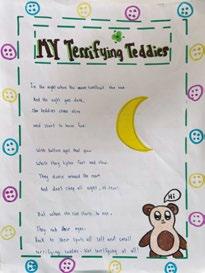 MY Terrifying Teddies
In the night when the moon
And the night gets dark,
the teddies come alive
and start to have fun.
With button eyes that glow
While they higher fast and slow.
They dance around the room
And don't sleep all night,
But when the sun starts to rise,
They rub their eyes.
Back to their spots all soft and small
terrifying teddies - Not terrifying at all!
Hi